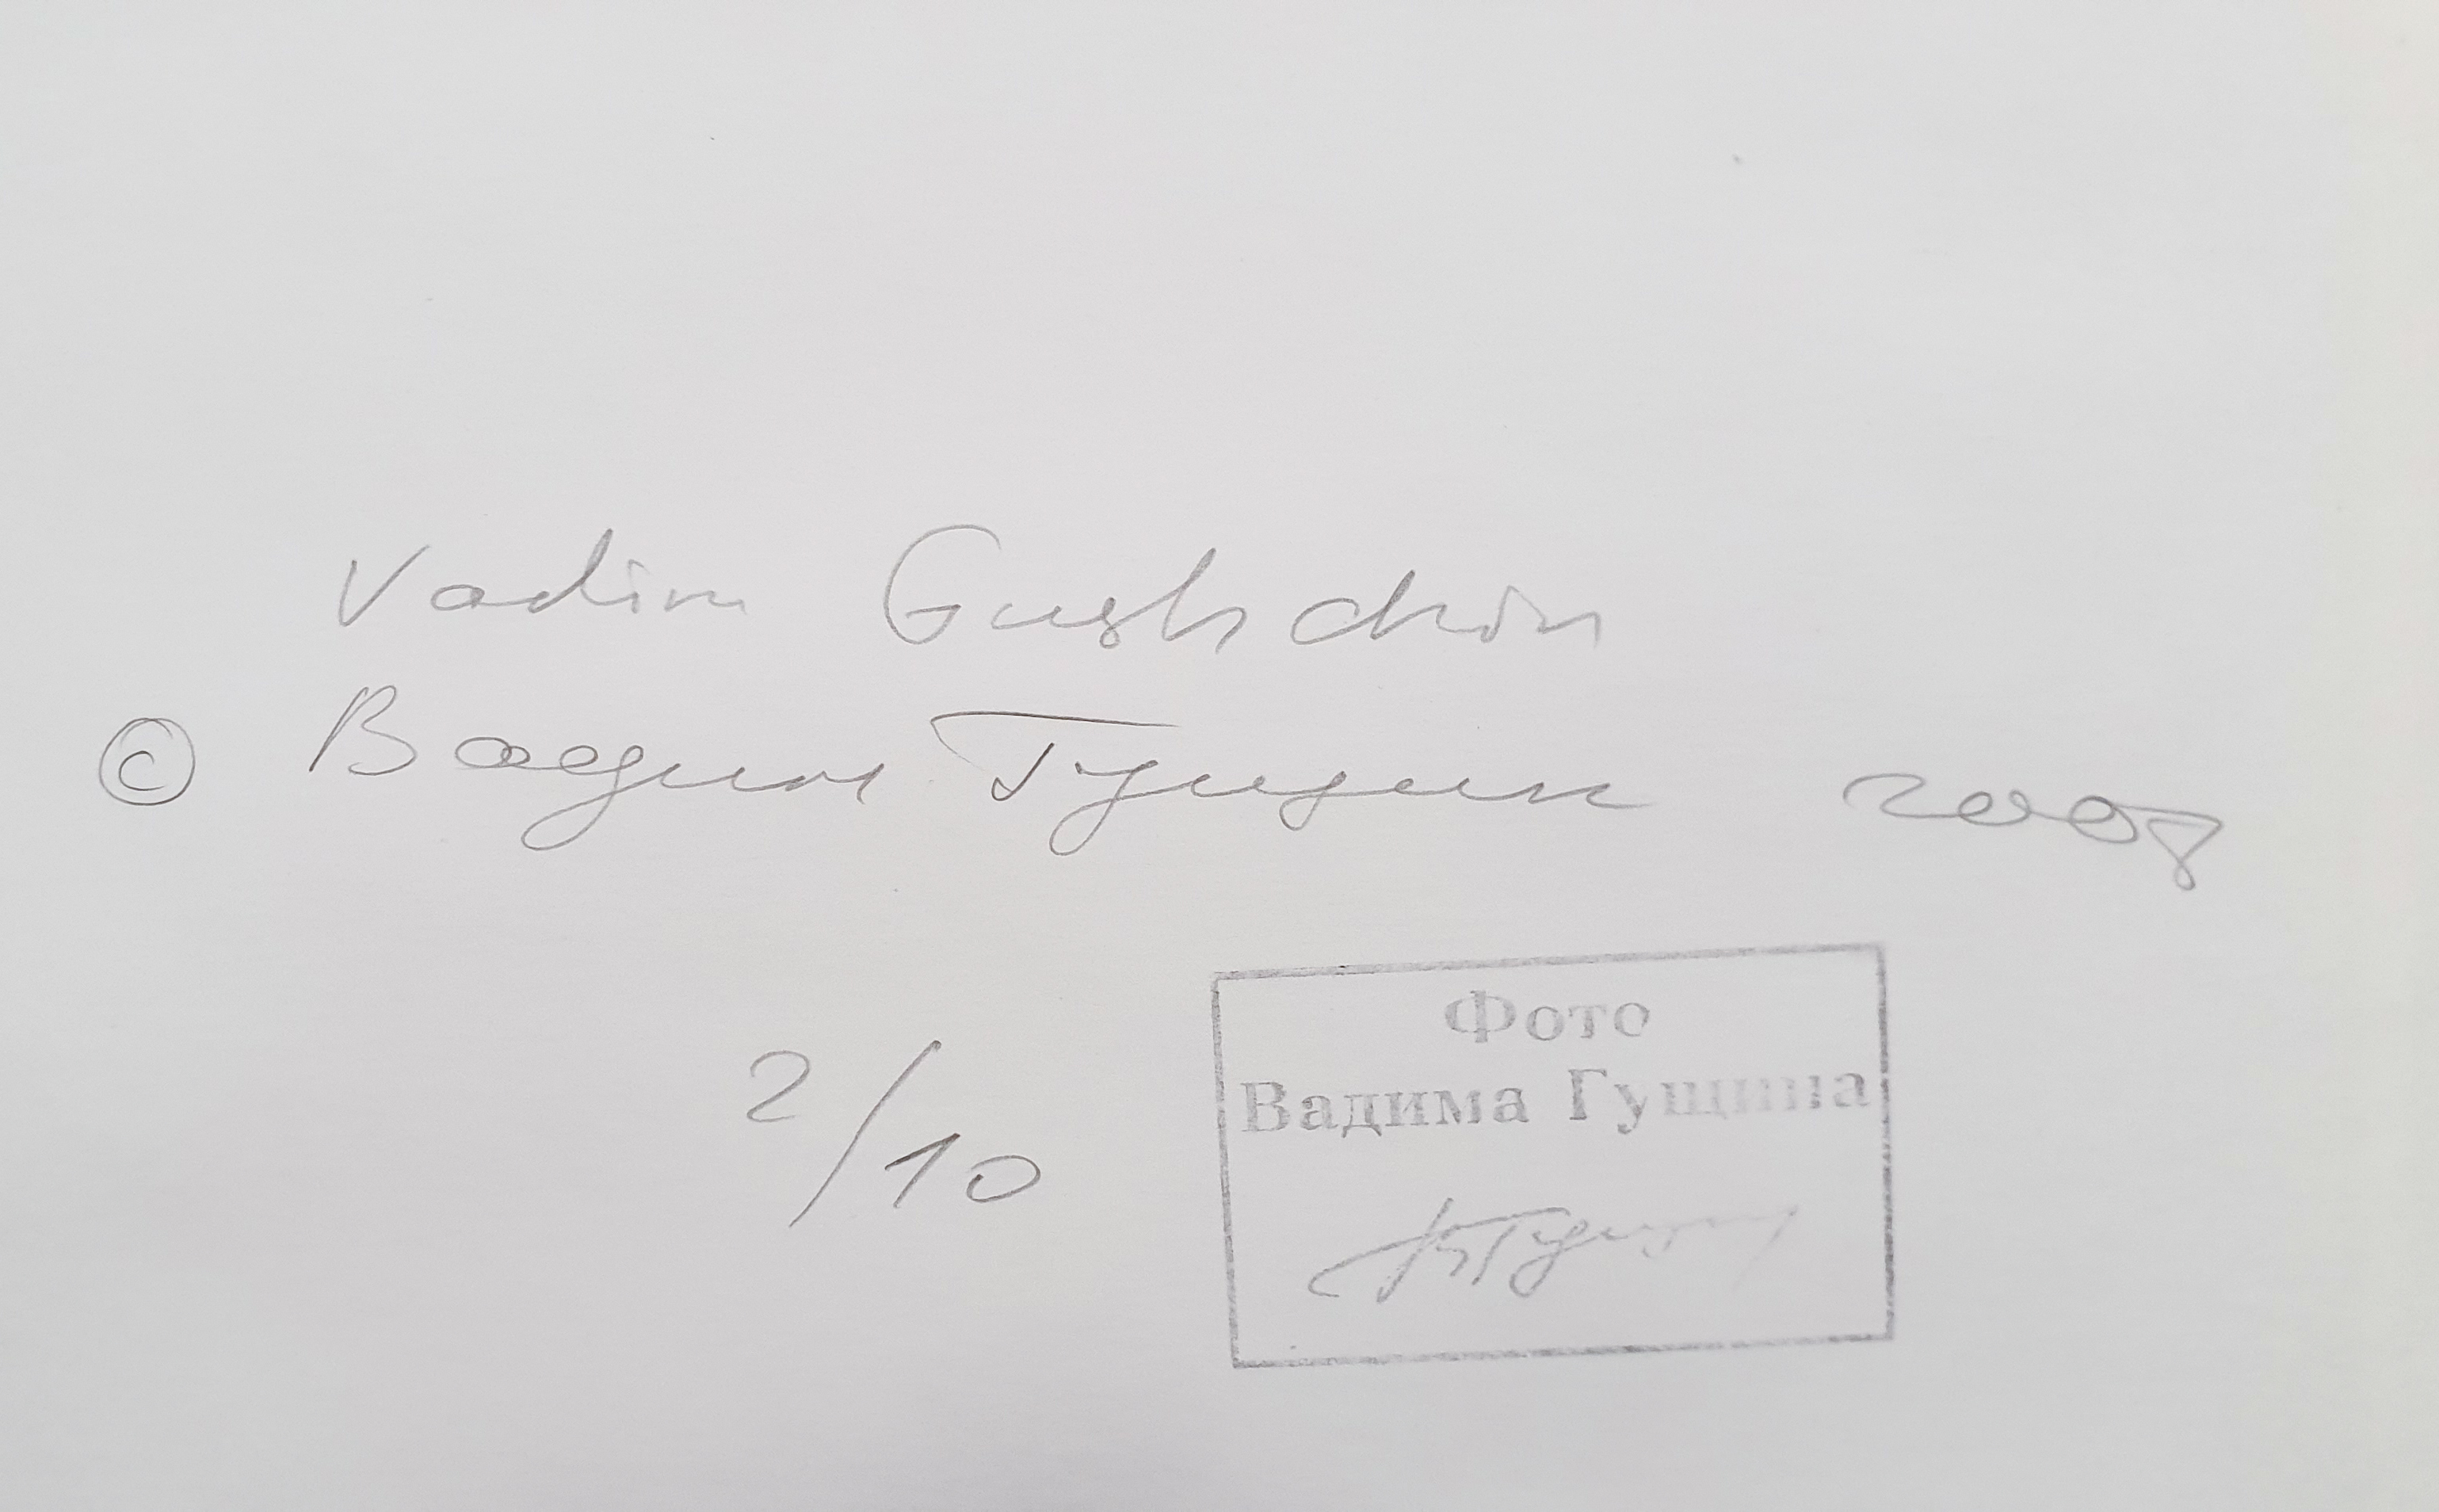 Vadim Gushchin
© Вадим Гущин 2008
2/10
Фото
Вадима Гущина